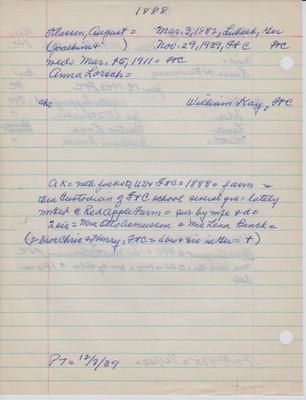 1888
Klassen, August = Mar. 3, 1882, Lubeck, Ger
(Joachim & ) Nov. 29, 1939, F+C F+C
wed = Mar. 15, 1911 = F+C
Anna Lorsch =
ch: William Kay, F+C
AK = mth pockets, US & F+C = 1888 = farm =
then Custodian of F+C school several yrs = lately
wrked @ Red Apple Farm = sur by wife & d =
2 sis = Mrs Otto Asmussen & Mrs Lena Benck =
(2 bros Chris & Henry, F+C = a bro & sis in Ger = +)
PT = 12/7/39